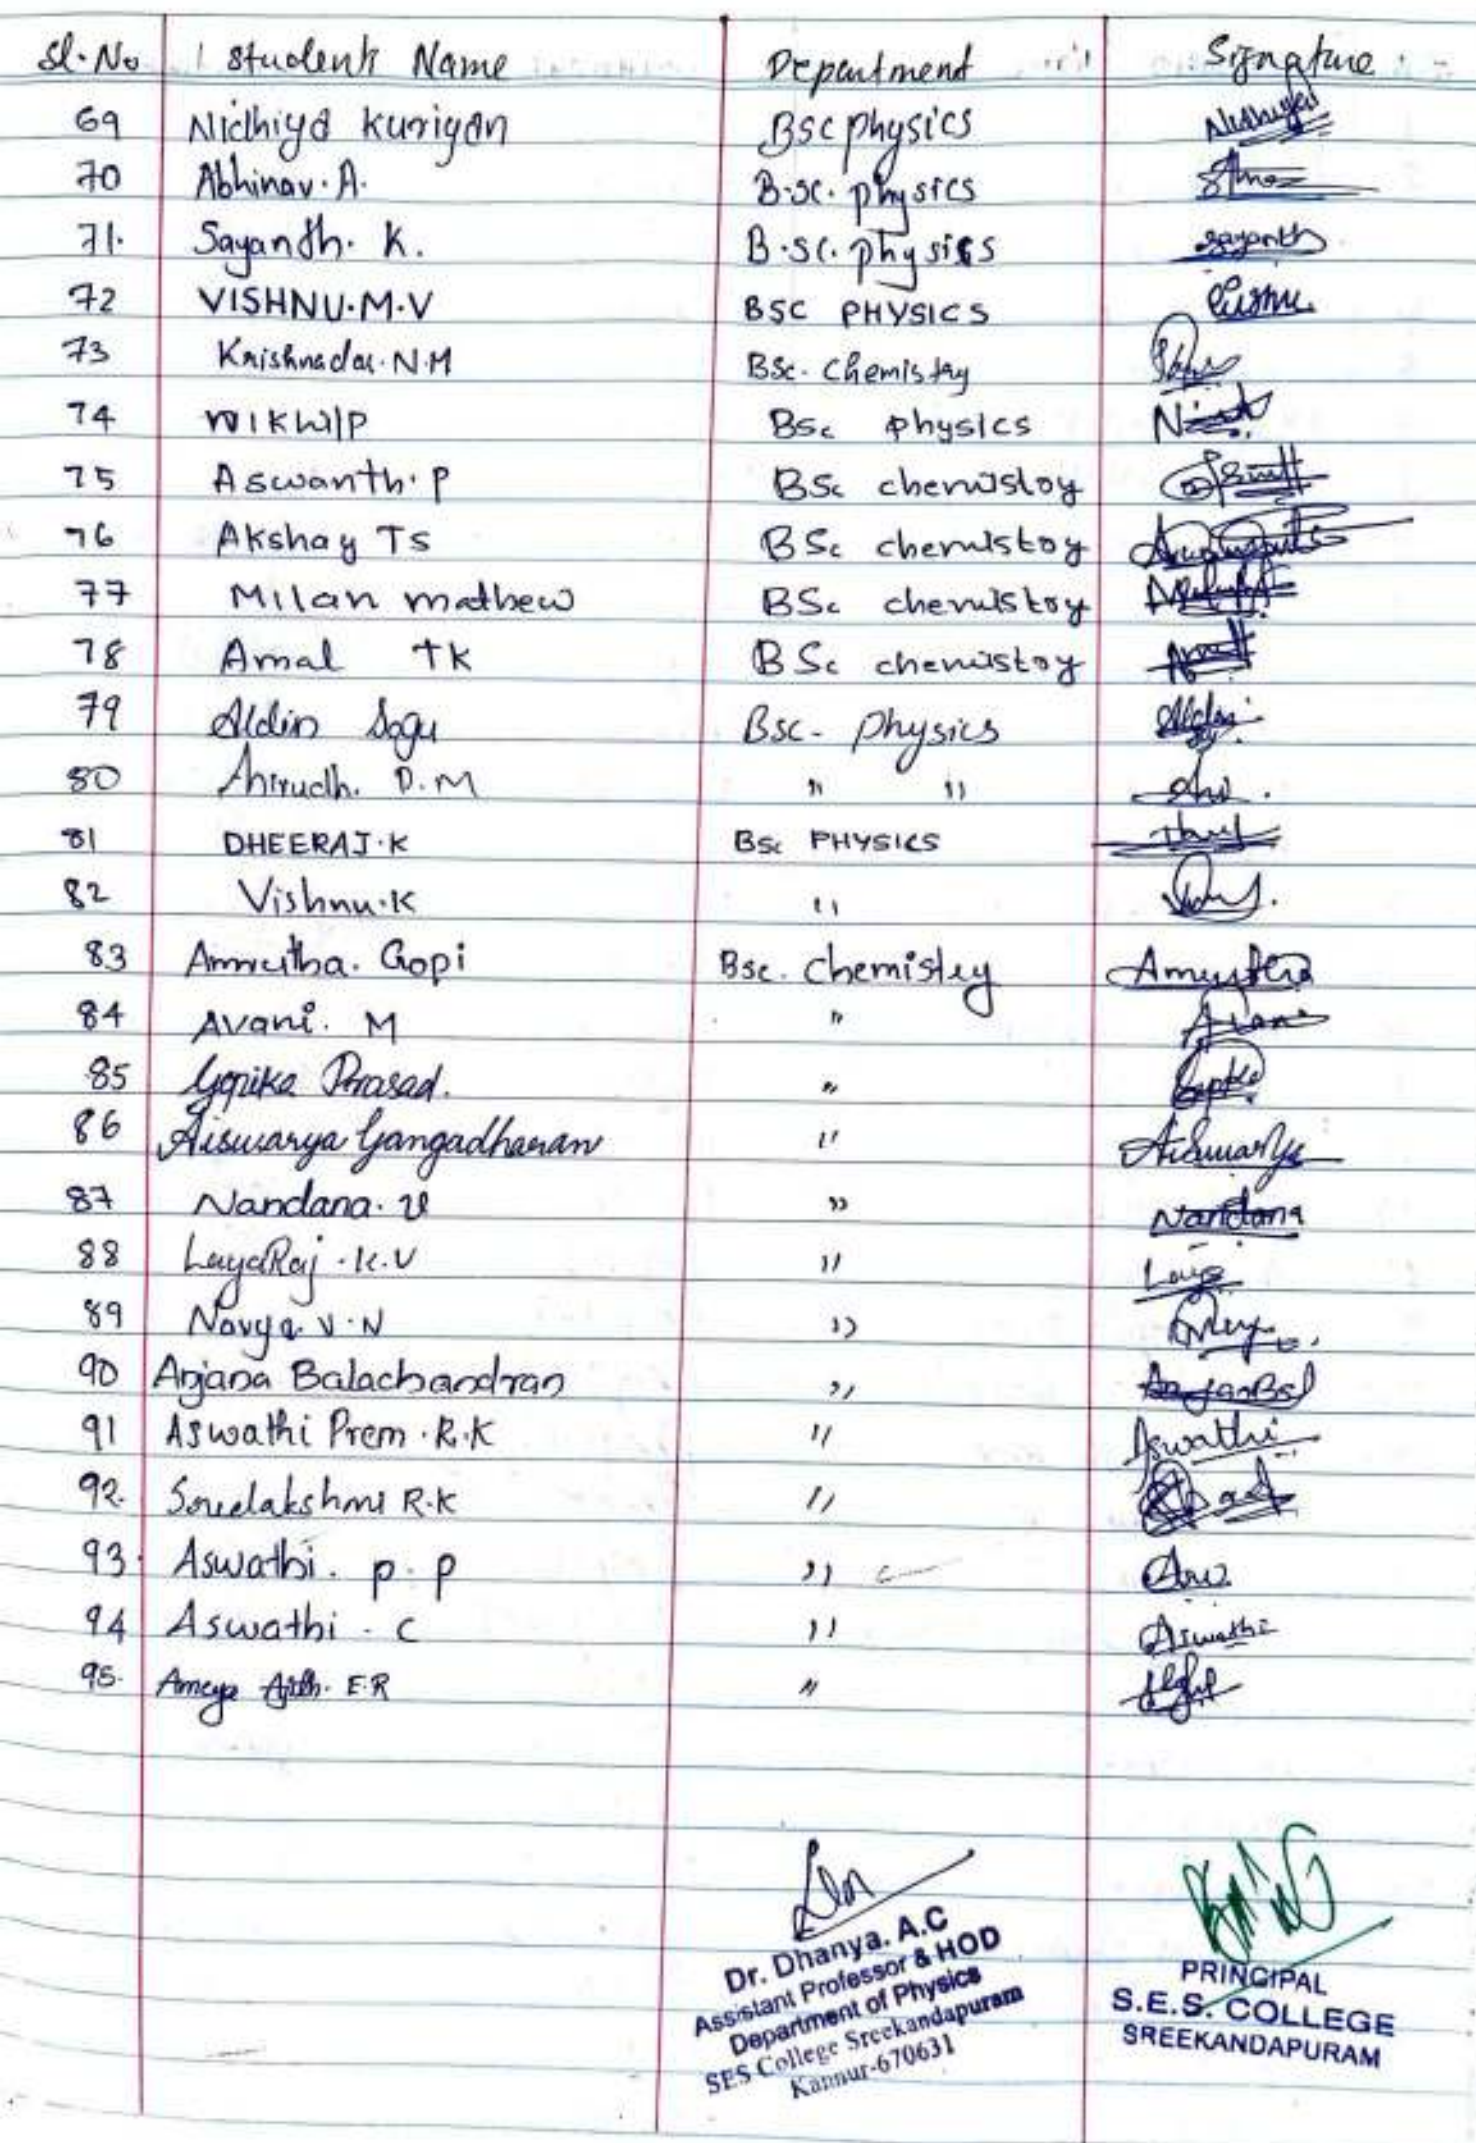 Sl. No Student Name Department Signature
69 Nidhiya Kuriyan Bsc physics Nidhiya
70 Abhinav. A. B.sc. physics
71. Sayandh. K. B.sc. physics sayanth
72 VISHNU.M.V BSC PHYSICS Vishnu
73 Krishnadas. N.M BSc. Chemistry
74 BSc physics
75 Aswanth. P BSc chemistoy
76 Akshay TS BSc chemistoy
77 Milan mathew BSc chemistoy
78 Amal TK BSc chemistoy
79 Aldin Bsc- Physics Aldin
80 Anirudh. P.M " "
81 DHEERAJ.K BSc PHYSICS
82 Vishnu.K "
83 Amrutha. Gopi Bsc. Chemistry Amrutha
84 Avani. M " Avani
85 Gopika Prasad. " Gopika
86 Aiswarya Gangadharan " Aiswarya
87 Nandana. V " Nandana
88 LayaRaj . K.V " Laya
89 Navya V.N "
90 Anjana Balachandran "
91 Aswathi Prem . R.K " Aswathi
92. Sreelakshmi R.K "
93. Aswathi . P. P "
94 Aswathi . C " Aswathi
95. Ameya E.R "
Dr. Dhanya. A.C
Assistant Professor & HOD
Department of Physics
SES College Sreekandapuram
Kannur-670631
PRINCIPAL
S.E.S. COLLEGE
SREEKANDAPURAM